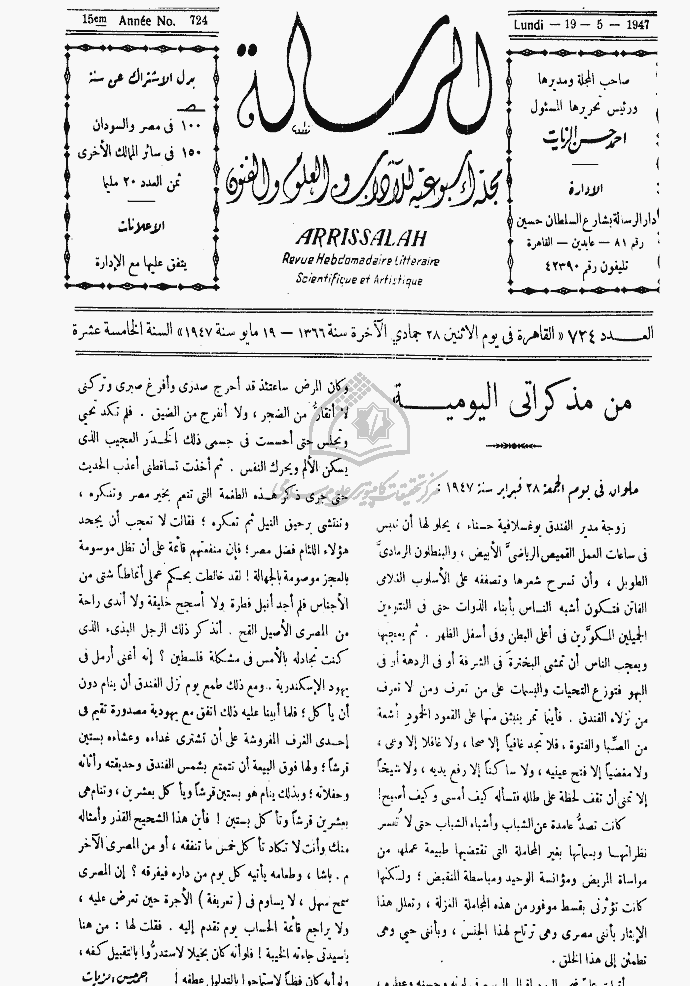 15em Année No. 724
Lundi - 19 - 5 - 1947
بدل الاشتراك عن سنة
١٠٠ فى مصر والسودان
١٥٠ فى سائر الممالك الأخرى
ثمن العدد ٢٠ مليما
الاعلانات
يتفق عليها مع الإدارة
الرسالة
مجلة أسبوعية للآداب والعلوم والفنون
ARRISSALAH
Revue Hebdomadaire Litteraire
Scientifique et Artistique
صاحب المجلة ومديرها
ورئيس تحريرها المسئول
احمد حسن الزيات
الادارة
دار الرسالة بشارع السلطان حسين
رقم ٨١ — عابدين — القاهرة
تليفون رقم ٤٢٣٩٠
العـدد ٧٢٤ « القاهرة فى يوم الاثنين ٢٨ جمادي الآخرة سنة ١٣٦٦ — ١٩ مايو سنة ١٩٤٧» السنة الخامسة عشرة
من مذكراتى اليوميـــة
حلوان فى يوم الجمعة ٢٨ فبراير سنة ١٩٤٧ :
زوجة مدير الفندق يوغسلافية حسناء ، يحلو لها أن تلبس
فى ساعات العمل القميص الرياضىَّ الأبيض ، والبنطلون الرمادىَّ
الطويل ، وأن تسرح شعرها وتصففه على الأسلوب الغلامى
الفاتن فتكون أشبه النـاس بأبناء الذوات حتى فى النتوءين
الجميلين المكوَّرين فى أعلى البطن وفى أسفل الظهر . ثم يعجبها
ويعجب الناس أن تمشى البخترة فى الشرفة أو فى الردهة أو فى
البهو فتوزع التحيات والبسمات على من تعرف ومن لا تعرف
من نزلاء الفندق . فأينما تمر ينبثق منها على القعود الخمود أشعة
من الصِّبا والفتوة ، فلا تجد غافياً إلا صحا ، ولا غافلا إلا وعى ،
ولا مغضياً إلا فتح عينيه ، ولا ساكناً إلا رفع يديه ، ولا شيخاً
إلا تمنى أن تقف لحظة على طالله فتسأله كيف أمسى وكيف أصبح!
كانت تصدُّ عامدة عن الشباب وأشباه الشباب حتى لا تُفسر
نظراتهـا وبسماتها بغير المجاملة التى تقتضيها طبيعة عملها من
مواساة المريض ومؤانسة الوحيد ومباسطة المنقبض ؛ ولكنها
كانت تؤثرنى بقسط موفور من هذه المجاملة الغزلة ، وتعلل هذا
الإيثار بأننى مصرى وهى ترتاح لهذا الجنس ، وبأننى حيى وهى
تطمئن إلى هذا الخلق .
وكان المرض ساعتئذ قد أحرج صدرى وأفرغ صبرى وتركنى
لا أنفكُّ من الضجر ، ولا أنفرج من الضيق . فلم تكد تحيي
وتجلس حتى أحسست فى جسمى ذلك الخدَر العجيب الذى
يسكن الألم ويحرك النفس . ثم أخذت تساقطنى أعذب الحديث
حتى جرى ذكر هـذه الطغمة التى تنعم بخير مصر وتنكره ،
وتنتشى برحيق النيل ثم تعكره ؛ فقالت لا تعجب أن يجحد
هؤلاء اللئام فضل مصر؛ فإن منفعتهم قائمة على أن تظل موسومة
بالعجز موصومة بالجهالة ! لقد خالطت بحكم عملى أنماطاً شتى من
الأجناس فلم أجد أنبل فطرة ولا أسجح خليقة ولا أندى راحة
من المصرى الأصيل القح . أتذكر ذلك الرجل البذىء الذى
كنت تجادله بالأمس فى مشكلة فلسطين ؟ إنه أغنى أرمل فى
يهود الإسكندرية . ومع ذلك طمع يوم نزل الفندق أن ينام دون
أن يأكل ؛ فلما أبينا عليه ذلك اتفق مع يهودية مصدورة تقيم فى
إحـدى الغرف المفروشة على أن تشترى غداءه وعشاءه بستين
قرشاً ؛ ولها فوق البيعة أن تتمتع بشمس الفندق وحديقته وأثاثه
وحفلاته ؛ وبذلك ينام هو بستين قرشاً ويأكل بعشرين ، وتنام هى
بعشرين قرشاً وتأكل بستين ! فأين هذا الشحيح القذر وأمثاله
منك وأنت لا تكاد تأكل خمس ما تنفقه ، أو من المصرى الآخر
م . باشا ، وطعامه يأتيه كل يوم من داره فيفرقه ؟ إن المصرى
سمح سهل ، لا يساوم فى ( تعريفة ) الأجرة حين تعرض عليه ،
ولا يراجع قائمة الحساب يوم تقدم إليه . فقلت لها : من هنا
ياسيدتى جاءته الخيبة ! فلو أنه كان بخيلا لاستدرُّوا بالتقبيل كفه ،
ولو أنه كان فظاً لاستماحوا بالتدليل عطفه !
احمد حسن الزيات